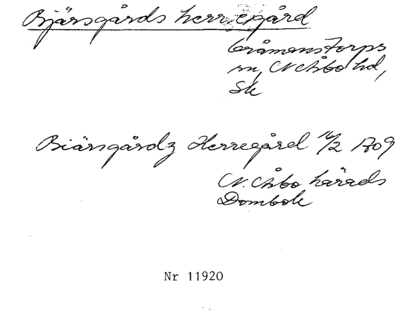 Bjärsgårds herregård
Gråmanstorps
sn, N Åsbo hd,
Sk
Biärsgårdz Herregård 16/2 1709
N. Åsbo härads
Dombok
Nr 11920